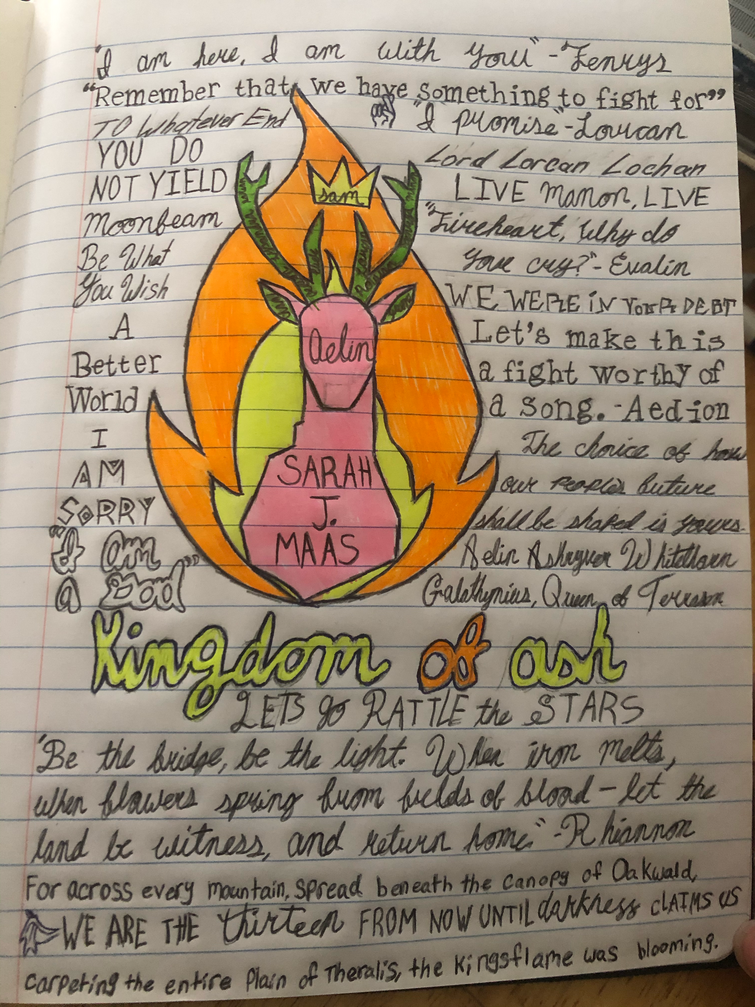 "I am here, I am with you" -Fenrys
"Remember that, we have something to fight for"
TO Whatever End
"I promise" -Lorcan
YOU DO
Lord Lorcan Lochan
NOT YIELD
sam
LIVE Manon, LIVE
Moonbeam
"Fireheart, Why do
Be What
You cry?" - Evalin
You Wish
WE WERE iN YOUR DEBT
A
Aelin
Let's make this
Better
a fight worthy of
World
a song. -Aedion
I
The choice of how
AM
SARAH
our peoples future
SORRY
J.
shall be shaped is yours.
"I am
MAAS
Aelin Ashryver Whitethorn
a God"
Galathynius, Queen of Terrasen
Kingdom of ash
LETS go RATTLE the STARS
"Be the bridge, be the light. When iron melts,
when flowers spring from fields of blood - let the
land be witness, and return home." -Rhiannon
For across every mountain, spread beneath the canopy of Oakwald,
WE ARE THE thirteen FROM NOW UNTIL darkness CLAIMS US
carpeting the entire Plain of Theralis, the Kingsflame was blooming.